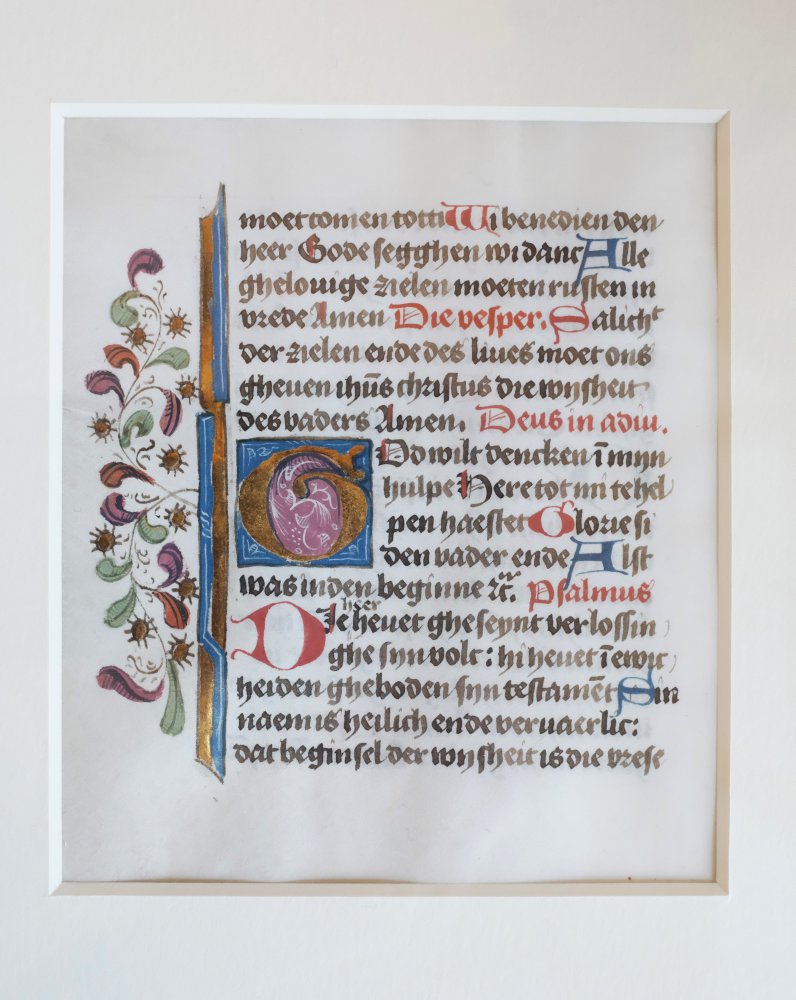 moet comen tot ti Wi benedien den
heer Gode segghen wi danc Alle
ghelouige zielen moeten rusten in
vrede Amen Die vesper. Salicht
der zielen ende des liues moet ons
gheuen ihūs christus die wijsheit
des vaders Amen. Deus in adiu.
God wilt dencken ī mijn
hulpe Here tot mi te hel
pen haestet Glorie si
den vader ende Alst
was in den beginne ⁊c̄. Psalmus
Die heer heuet gheseynt verlossin
ghe sijn volc: hi heuet ī ewic
heiden gheboden sijn testamēt Sin
naem is heilich ende veruaerlic:
dat beginsel der wijsheit is die vrese